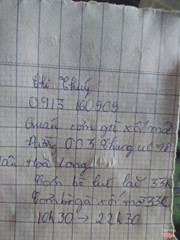 Chị Thúy
0913 160909
Quán cơm gà xối mỡ
Đường D.03 Chung cư
Hoà Long
Cơm bò lúc lắc 33k
Cơm gà xối mỡ 33k
10h30 → 22h30